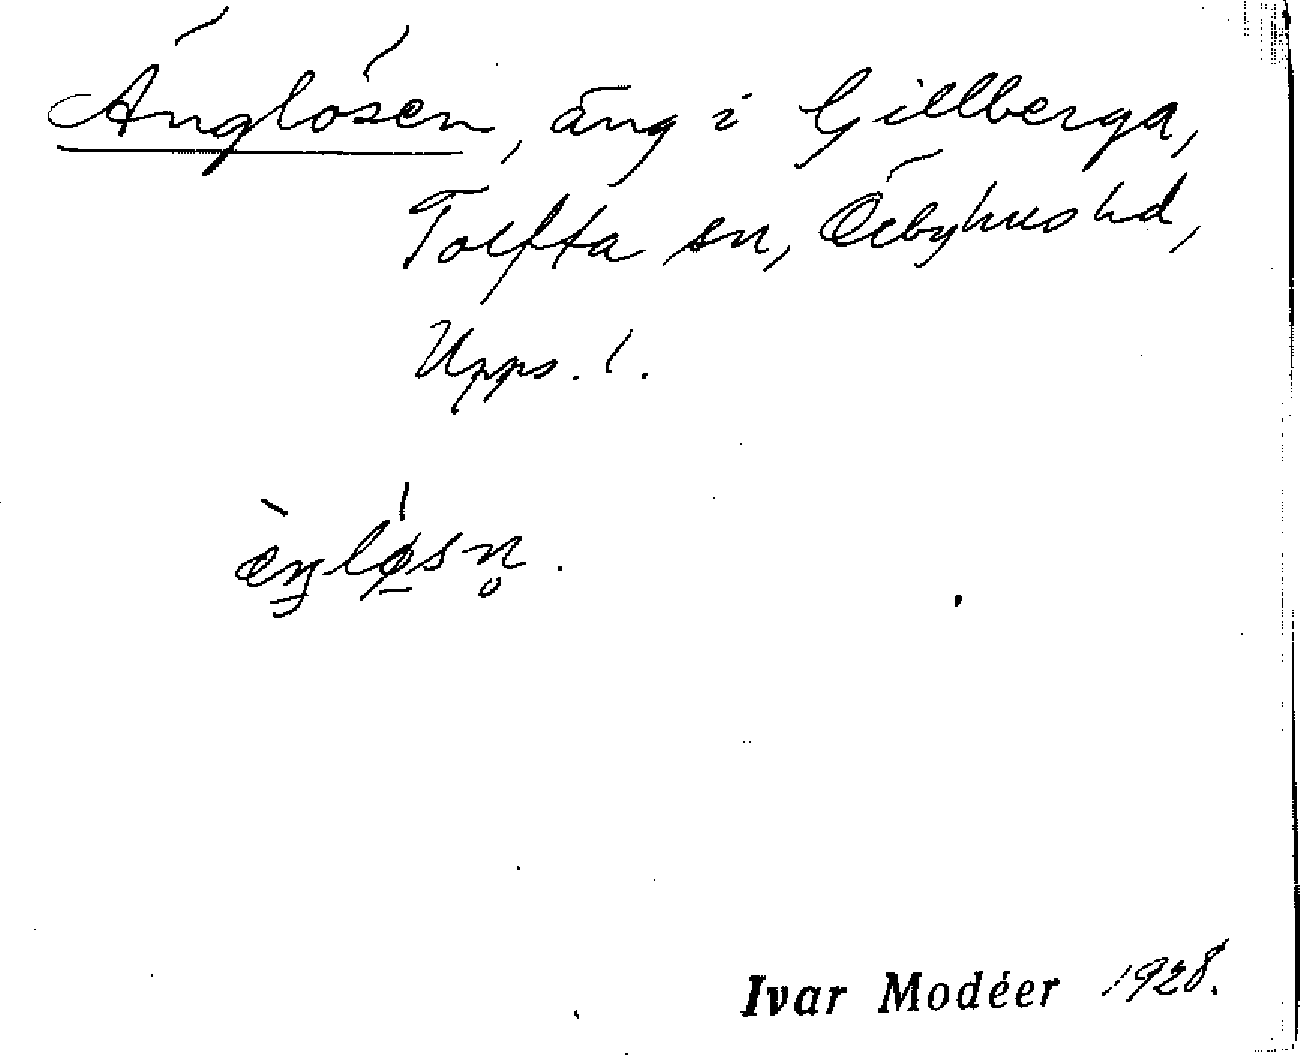 Änglösen, äng i Gillberga,
Tolfta sn, Örbyhus hd,
Upps. l.
èŋlǿ̠sn̥.
Ivar Modéer 1928.